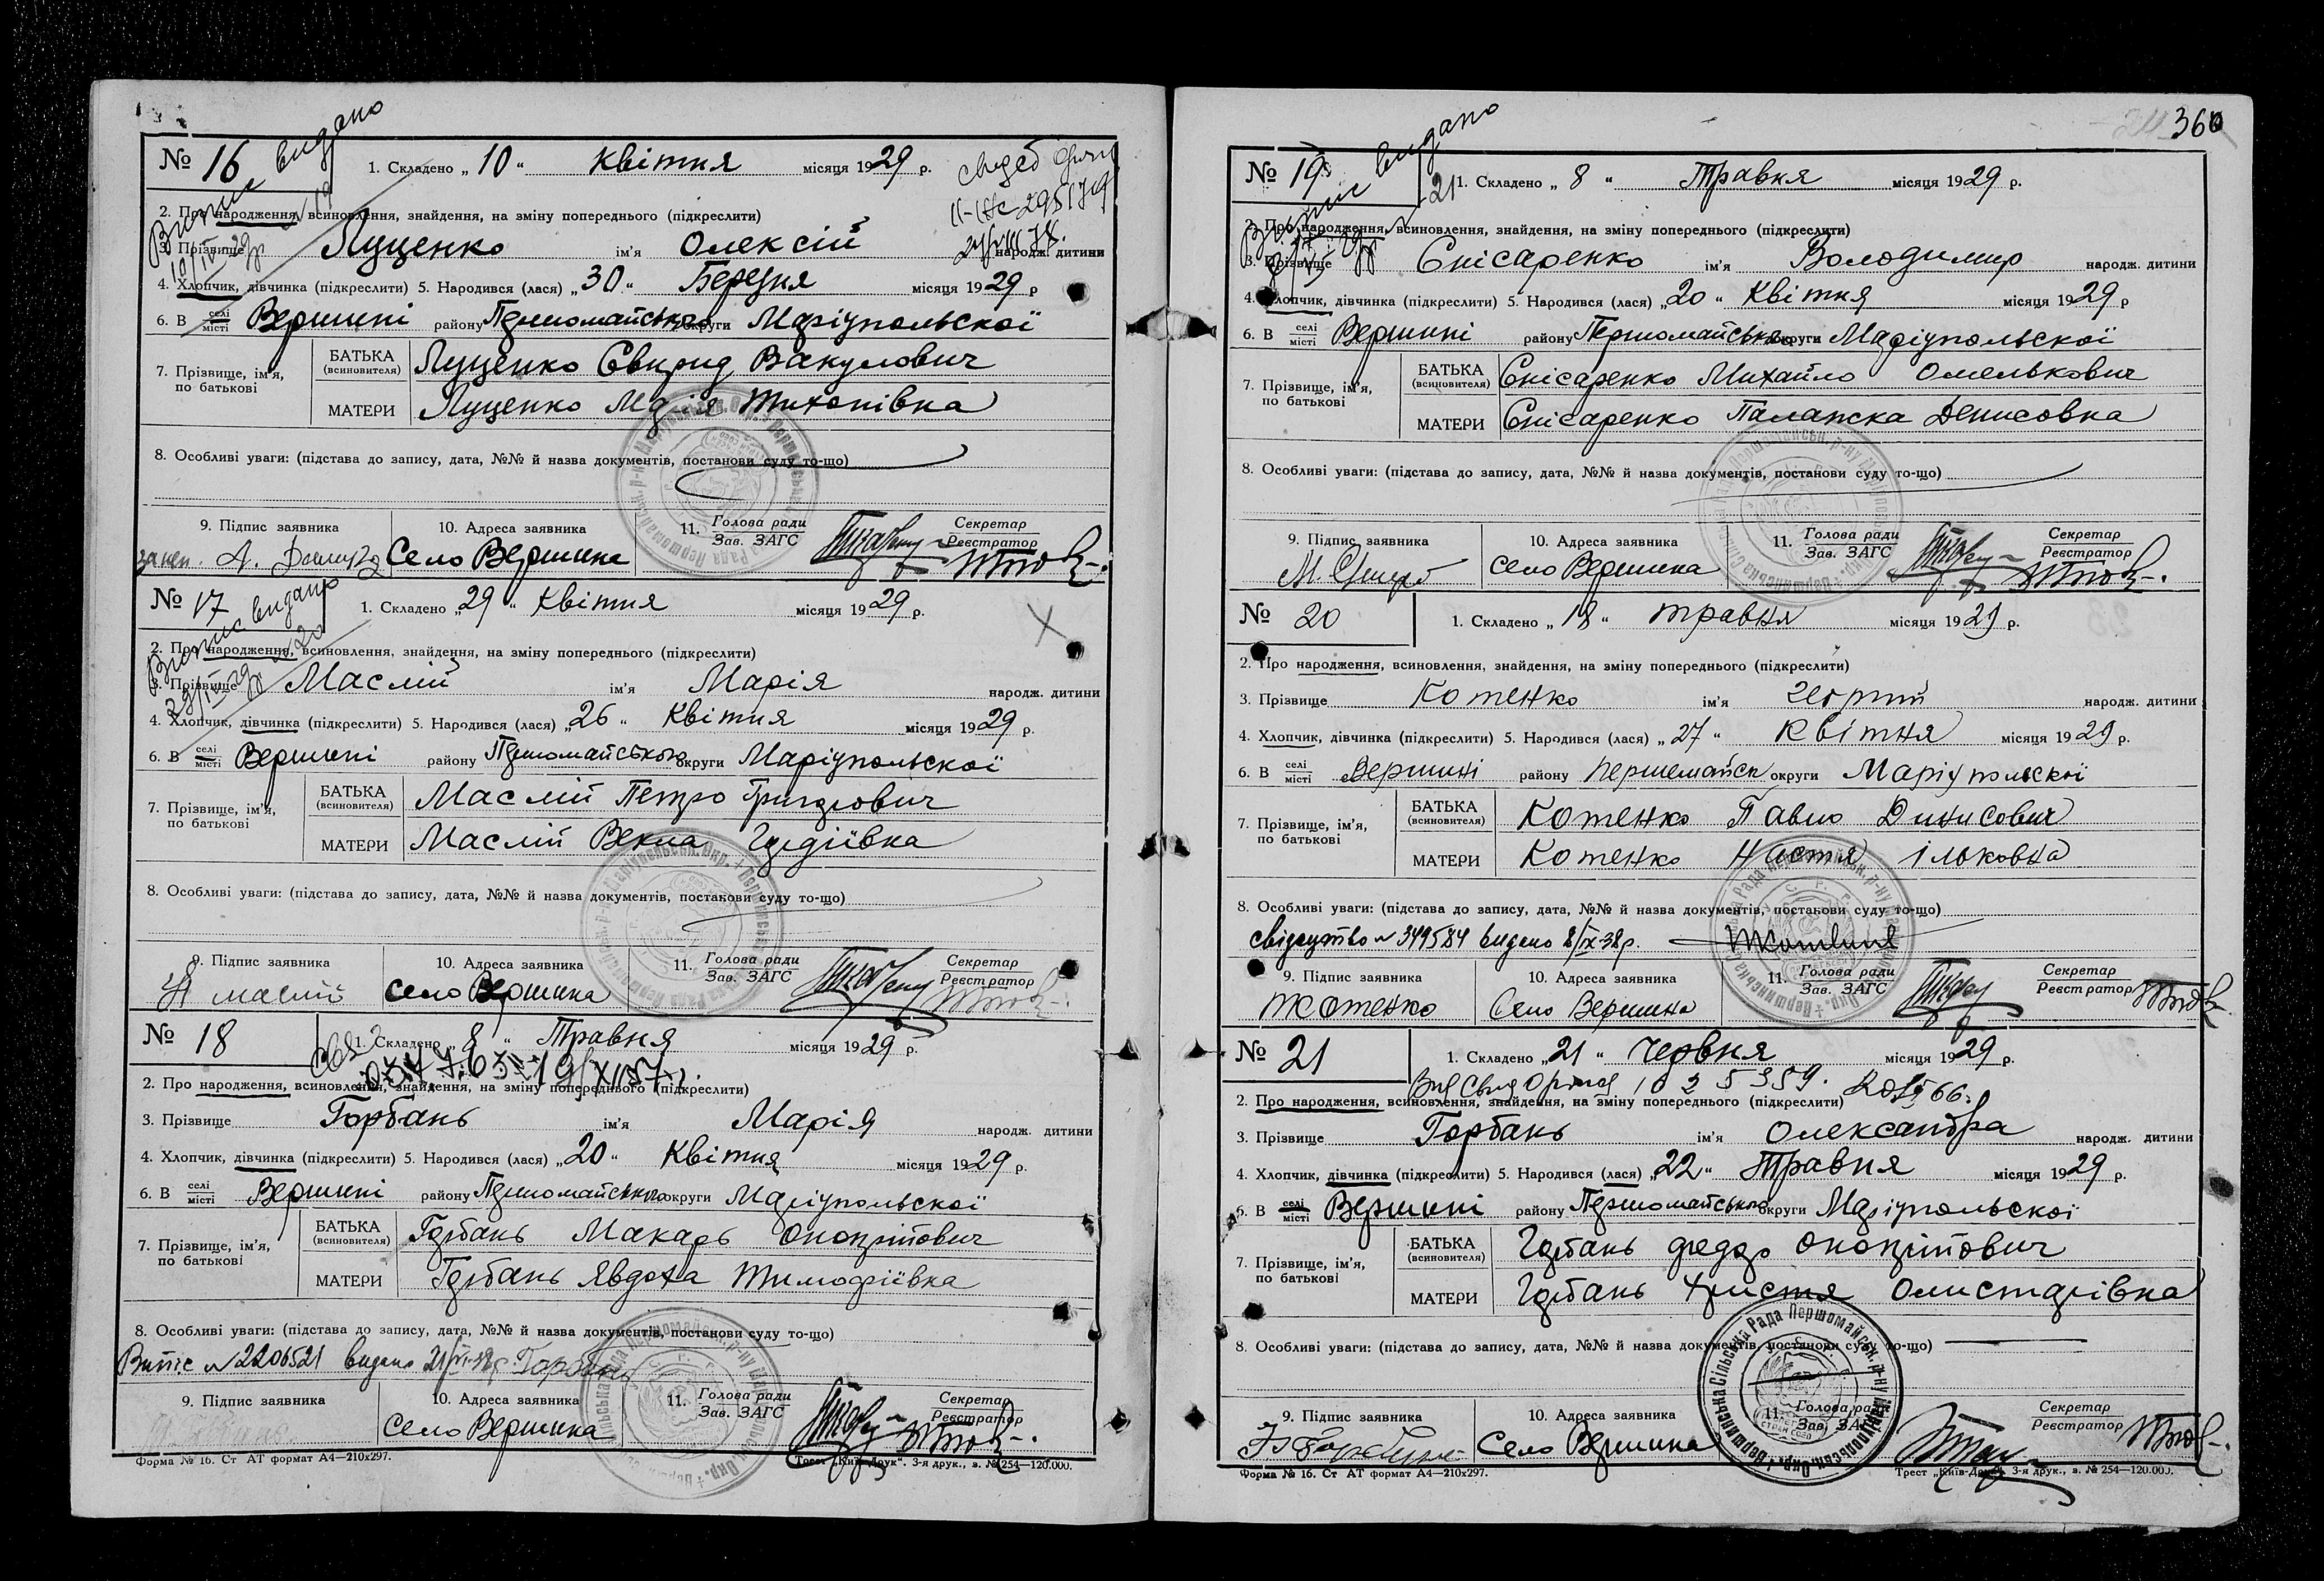 № 16 1. Складено „ 10 “ Квітня місяця 1929 р.
Виписъ видано
2. Про народження, всиновлення, знайдення, на зміну попереднього (підкреслити)
3. Прізвище Луценко ім'я Олексій народж. дитини
4. Хлопчик, дівчинка (підкреслити) 5. Народився (лася) „ 30 “ Березня місяця 1929 р
6. В селі місті Вершині району Першомайського округи Маріупольскої
7. Прізвище, ім'я, по батькові
БАТЬКА (всиновителя) Луценко Свирид Вакулович
МАТЕРИ Луценко Марія Тихонівка
8. Особливі уваги: (підстава до запису, дата, №№ й назва документів, постанови суду то-що)
9. Підпис заявника 10. Адреса заявника 11. Голова ради Зав. ЗАГС Секретар Реєстратор
Село Вершина
№ 17 1. Складено „ 29 “ Квітня місяця 1929 р.
видано
2. Про народження, всиновлення, знайдення, на зміну попереднього (підкреслити)
3. Прізвище Маслій ім'я Марія народж. дитини
4. Хлопчик, дівчинка (підкреслити) 5. Народився (лася) „ 26 “ Квітня місяця 1929 р.
6. В селі місті Вершині району Першомайського округи Маріупольскої
7. Прізвище, ім'я, по батькові
БАТЬКА (всиновителя) Маслій Петро Григорович
МАТЕРИ Маслій Векла Гордіївка
8. Особливі уваги: (підстава до запису, дата, №№ й назва документів, постанови суду то-що)
9. Підпис заявника 10. Адреса заявника 11. Голова ради Зав. ЗАГС Секретар Реєстратор
маслій Село Вершина
№ 18 1. Складено „ 8 “ Травня місяця 1929 р.
2. Про народження, всиновлення, знайдення, на зміну попереднього (підкреслити)
3. Прізвище Горбань ім'я Марія народж. дитини
4. Хлопчик, дівчинка (підкреслити) 5. Народився (лася) „ 20 “ Квітня місяця 1929 р.
6. В селі місті Вершині району Першомайського округи Маріупольскої
7. Прізвище, ім'я, по батькові
БАТЬКА (всиновителя) Горбань Макарь Онопрійович
МАТЕРИ Горбань Явдоха Тимофіївка
8. Особливі уваги: (підстава до запису, дата, №№ й назва документів, постанови суду то-що)
Випіс № 2206521 видано Горбань
9. Підпис заявника 10. Адреса заявника 11. Голова ради Зав. ЗАГС Секретар Реєстратор
Село Вершина
Форма № 16. Ст АТ формат А4—210х297. Трест „Київ-Друк“. 3-я друк., з. № 254—120.000.
360
№ 19 1. Складено „ 8 “ Травня місяця 1929 р.
видано
2. Про народження, всиновлення, знайдення, на зміну попереднього (підкреслити)
3. Прізвище Снісаренко ім'я Володимир народж. дитини
4. Хлопчик, дівчинка (підкреслити) 5. Народився (лася) „ 20 “ Квітня місяця 1929 р
6. В селі місті Вершині району Першомайського округи Маріупольскої
7. Прізвище, ім'я, по батькові
БАТЬКА (всиновителя) Снісаренко Михайло Омелькович
МАТЕРИ Снісаренко Палажка Денисовка
8. Особливі уваги: (підстава до запису, дата, №№ й назва документів, постанови суду то-що)
9. Підпис заявника 10. Адреса заявника 11. Голова ради Зав. ЗАГС Секретар Реєстратор
Село Вершина
№ 20 1. Складено „ 18 “ травня місяця 1929 р.
2. Про народження, всиновлення, знайдення, на зміну попереднього (підкреслити)
3. Прізвище Котенко ім'я Георгий народж. дитини
4. Хлопчик, дівчинка (підкреслити) 5. Народився (лася) „ 27 “ Квітня місяця 1929 р.
6. В селі місті Вершині району Першемайск округи Маріупольскої
7. Прізвище, ім'я, по батькові
БАТЬКА (всиновителя) Котенко Павло Динисович
МАТЕРИ Котенко Настя Ільковна
8. Особливі уваги: (підстава до запису, дата, №№ й назва документів, постанови суду то-що)
свідоцтво № 349584 видано 8/IX-38 р.
9. Підпис заявника 10. Адреса заявника 11. Голова ради Зав. ЗАГС Секретар Реєстратор
Котенко Село Вершина
№ 21 1. Складено „ 21 “ Червня місяця 1929 р.
2. Про народження, всиновлення, знайдення, на зміну попереднього (підкреслити)
3. Прізвище Горбань ім'я Олександра народж. дитини
4. Хлопчик, дівчинка (підкреслити) 5. Народився (лася) „ 22 “ Травня місяця 1929 р.
6. В селі місті Вершині району Першомайського округи Маріупольскої
7. Прізвище, ім'я, по батькові
БАТЬКА (всиновителя) Горбань Федор Онопрійович
МАТЕРИ Горбань Христя Олистарівка
8. Особливі уваги: (підстава до запису, дата, №№ й назва документів, постанови суду то-що)
9. Підпис заявника 10. Адреса заявника 11. Голова ради Зав. ЗАГС Секретар Реєстратор
Село Вершина
Форма № 16. Ст АТ формат А4—210х297. Трест „Київ-Друк“. 3-я друк., з. № 254—120.000.